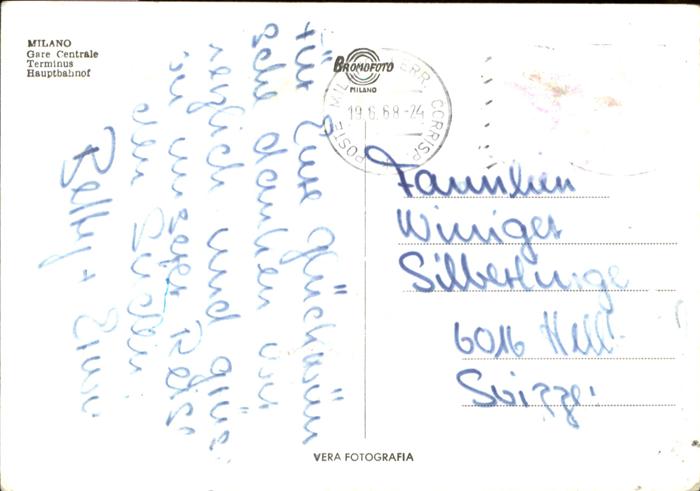 MILANO
Gare Centrale
Terminus
Hauptbahnof
BROMOFOTO
MILANO
POSTE MIL ERR. CORRISP
19.6.68-24
Für Eure Glückwün
sche danken wir
herzlich und grüs
von unserer Reise
den Süden
Betty + Erwin
Familien
Winiger
Silberlinge
6016 Hell
Svizzera
VERA FOTOGRAFIA